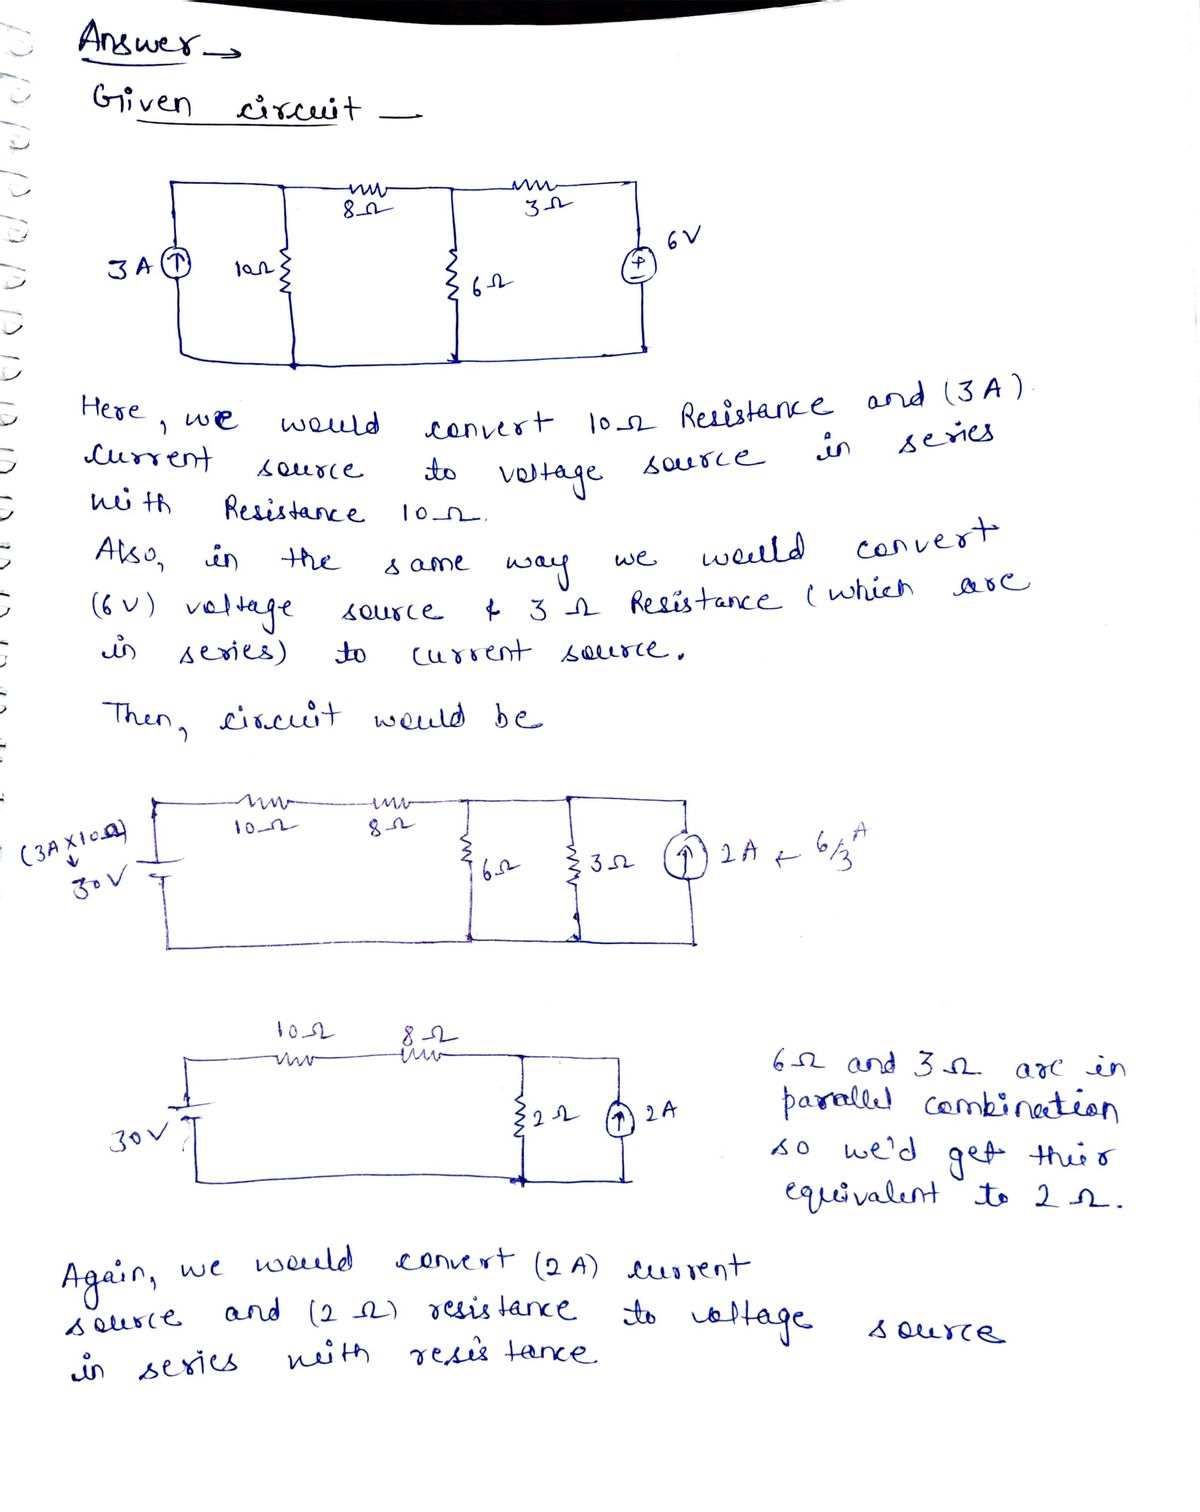 Answer →
Given circuit —
8Ω
3Ω
3 A
10Ω
6Ω
6V
+
Here, we would convert 10Ω Resistance and (3 A)
current source to voltage source in series
with Resistance 10Ω.
Also, in the same way we would convert
(6V) voltage source & 3 Ω Resistance (which are
in series) to current source.
Then, circuit would be
(3A×10Ω)
↓
30V
10Ω
8Ω
6Ω
3Ω
2A ← 6/3 A
10Ω
8Ω
30V
2Ω
2A
6Ω and 3Ω are in
parallel combination
so we'd get their
equivalent to 2Ω.
Again, we would convert (2 A) current
source and (2 Ω) resistance to voltage source
in series with resistance